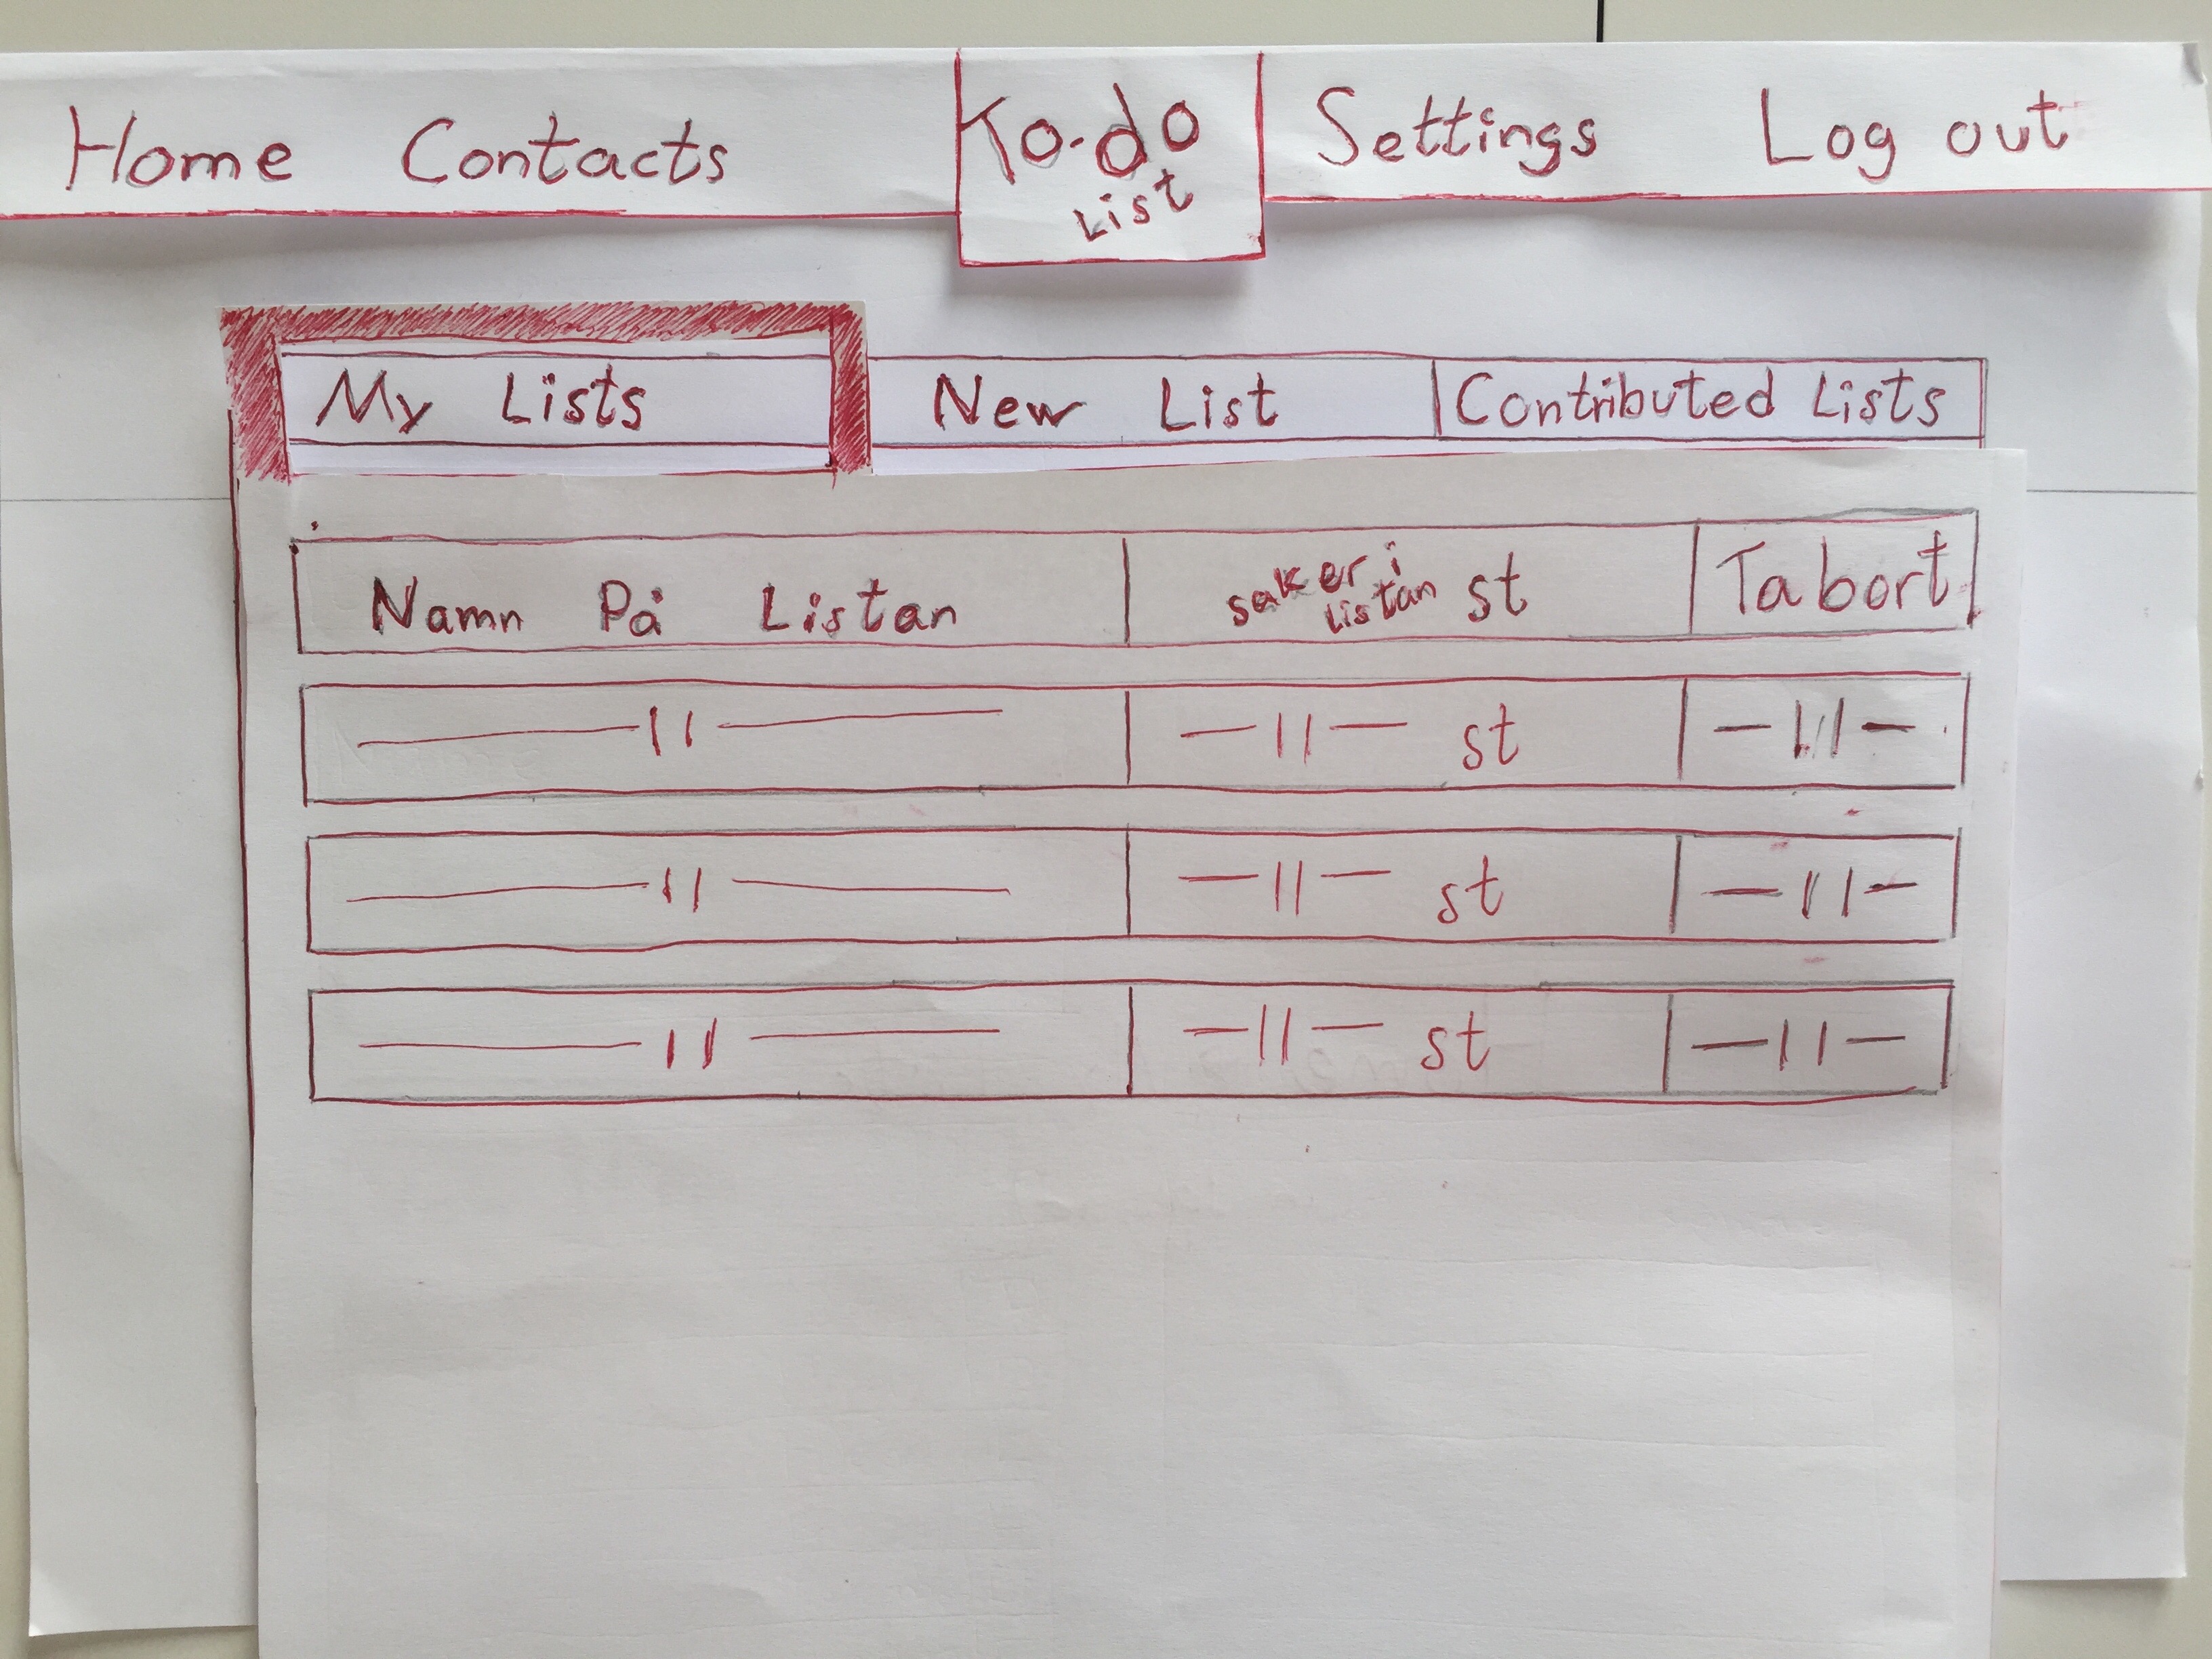 Home Contacts To-do List Settings Log out
My Lists New List Contributed Lists
Namn På Listan saker i listan st Tabort
—11— —11— st —11—
—11— —11— st —11—
—11— —11— st —11—